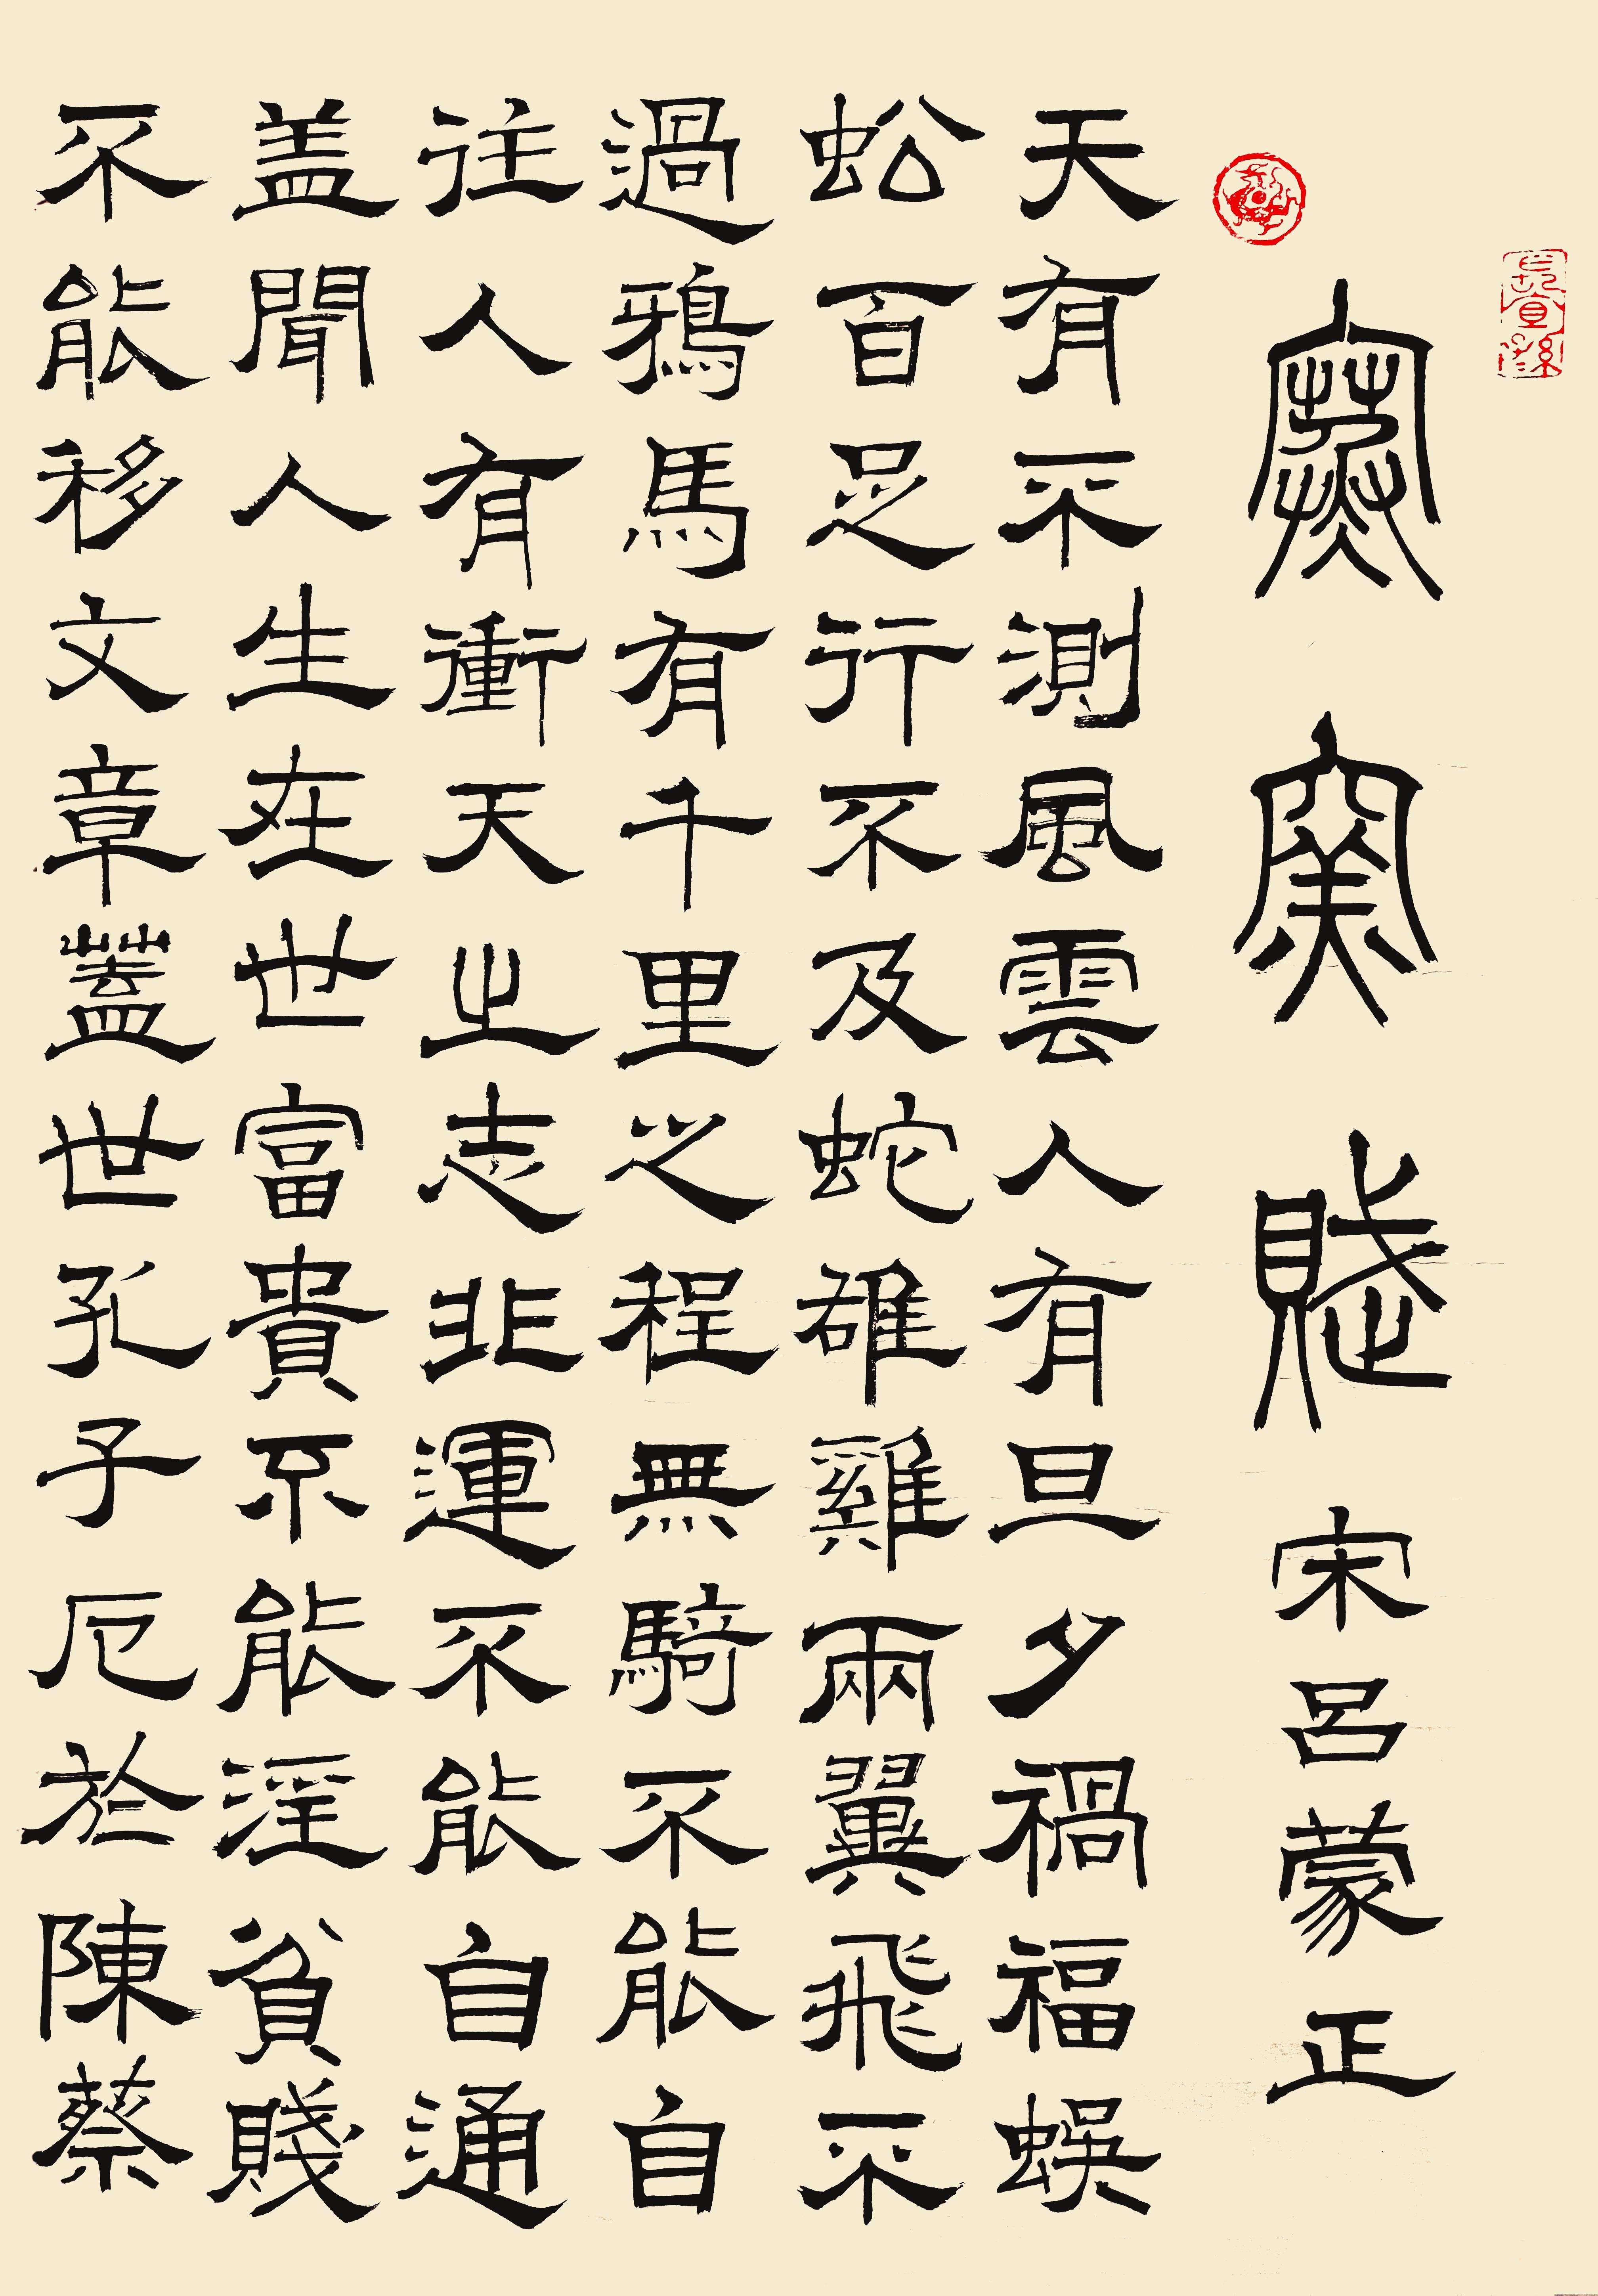 寒窯賦 宋呂蒙正
天有不測風雲人有旦夕禍福蜈
蚣百足行不及蛇雄雞兩翼飛不
過鴉馬有千里之程無騎不能自
往人有衝天之志非運不能自通
盖聞人生在世富貴不能淫貧賤
不能移文章蓋世孔子厄於陳蔡
長宜子孫